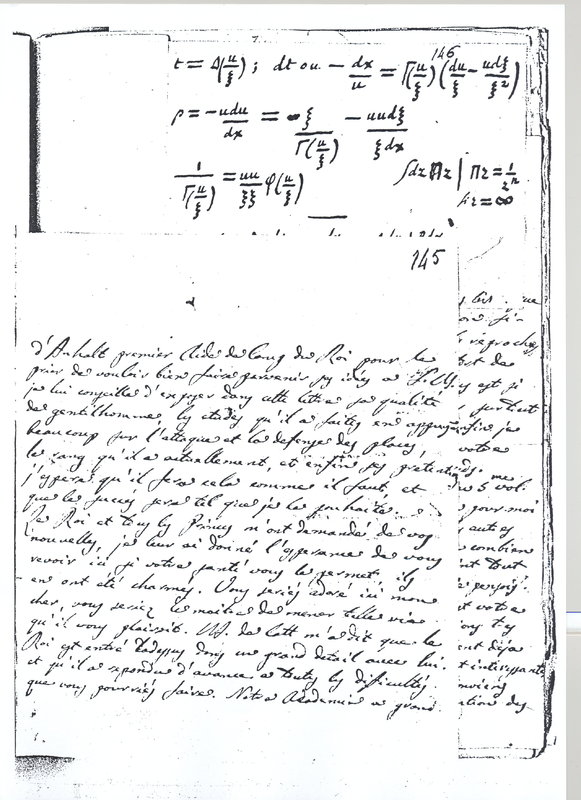 146
t = Δ(u/ξ) ; dt ou - dx/u = Γ(u/ξ) (du/ξ - udξ/ξ²)
ρ = -udu/dx = ξ/Γ(u/ξ) - uudξ/ξdx
1/Γ(u/ξ) = uu/ξξ φ(u/ξ)
∫dz Πz | Πz = 1/zⁿ
z = ∞
145
d'Anhalt premier Aide de Camp du Roi pour le
prier de vouloir bien faire parvenir ses idées a S. M.
je lui conseille d'exposer dans cette lettre sa qualité
de gentilhomme, les etudes qu'il a faites en appuyant
beaucoup sur l'attaque et la defense des places,
le rang qu'il a actuellement, et enfin ses pretentions
J'espere qu'il fera cela comme il faut, et
que le succés sera tel que je le souhaite.
Le Roi et tous les Princes m'ont demandé de vos
nouvelles, je leur ai donné l'esperance de vous
revoir ici si votre santé vous le permet, ils
en ont été charmés. Vous seriés adoré ici mon
cher, vous seriez le maitre de mener telle vie
qu'il vous plairoit. M. de Catt m'a dit que le
Roi est entré ladessus dans un grand detail avec lui.
et qu'il a repondu d'avance a toutes les difficultés
que vous pourriés faire. Notre Academie a grand
reproches
sur tout
votre
pour moi
autres
combien
tout
et votre
ent deja
interessante